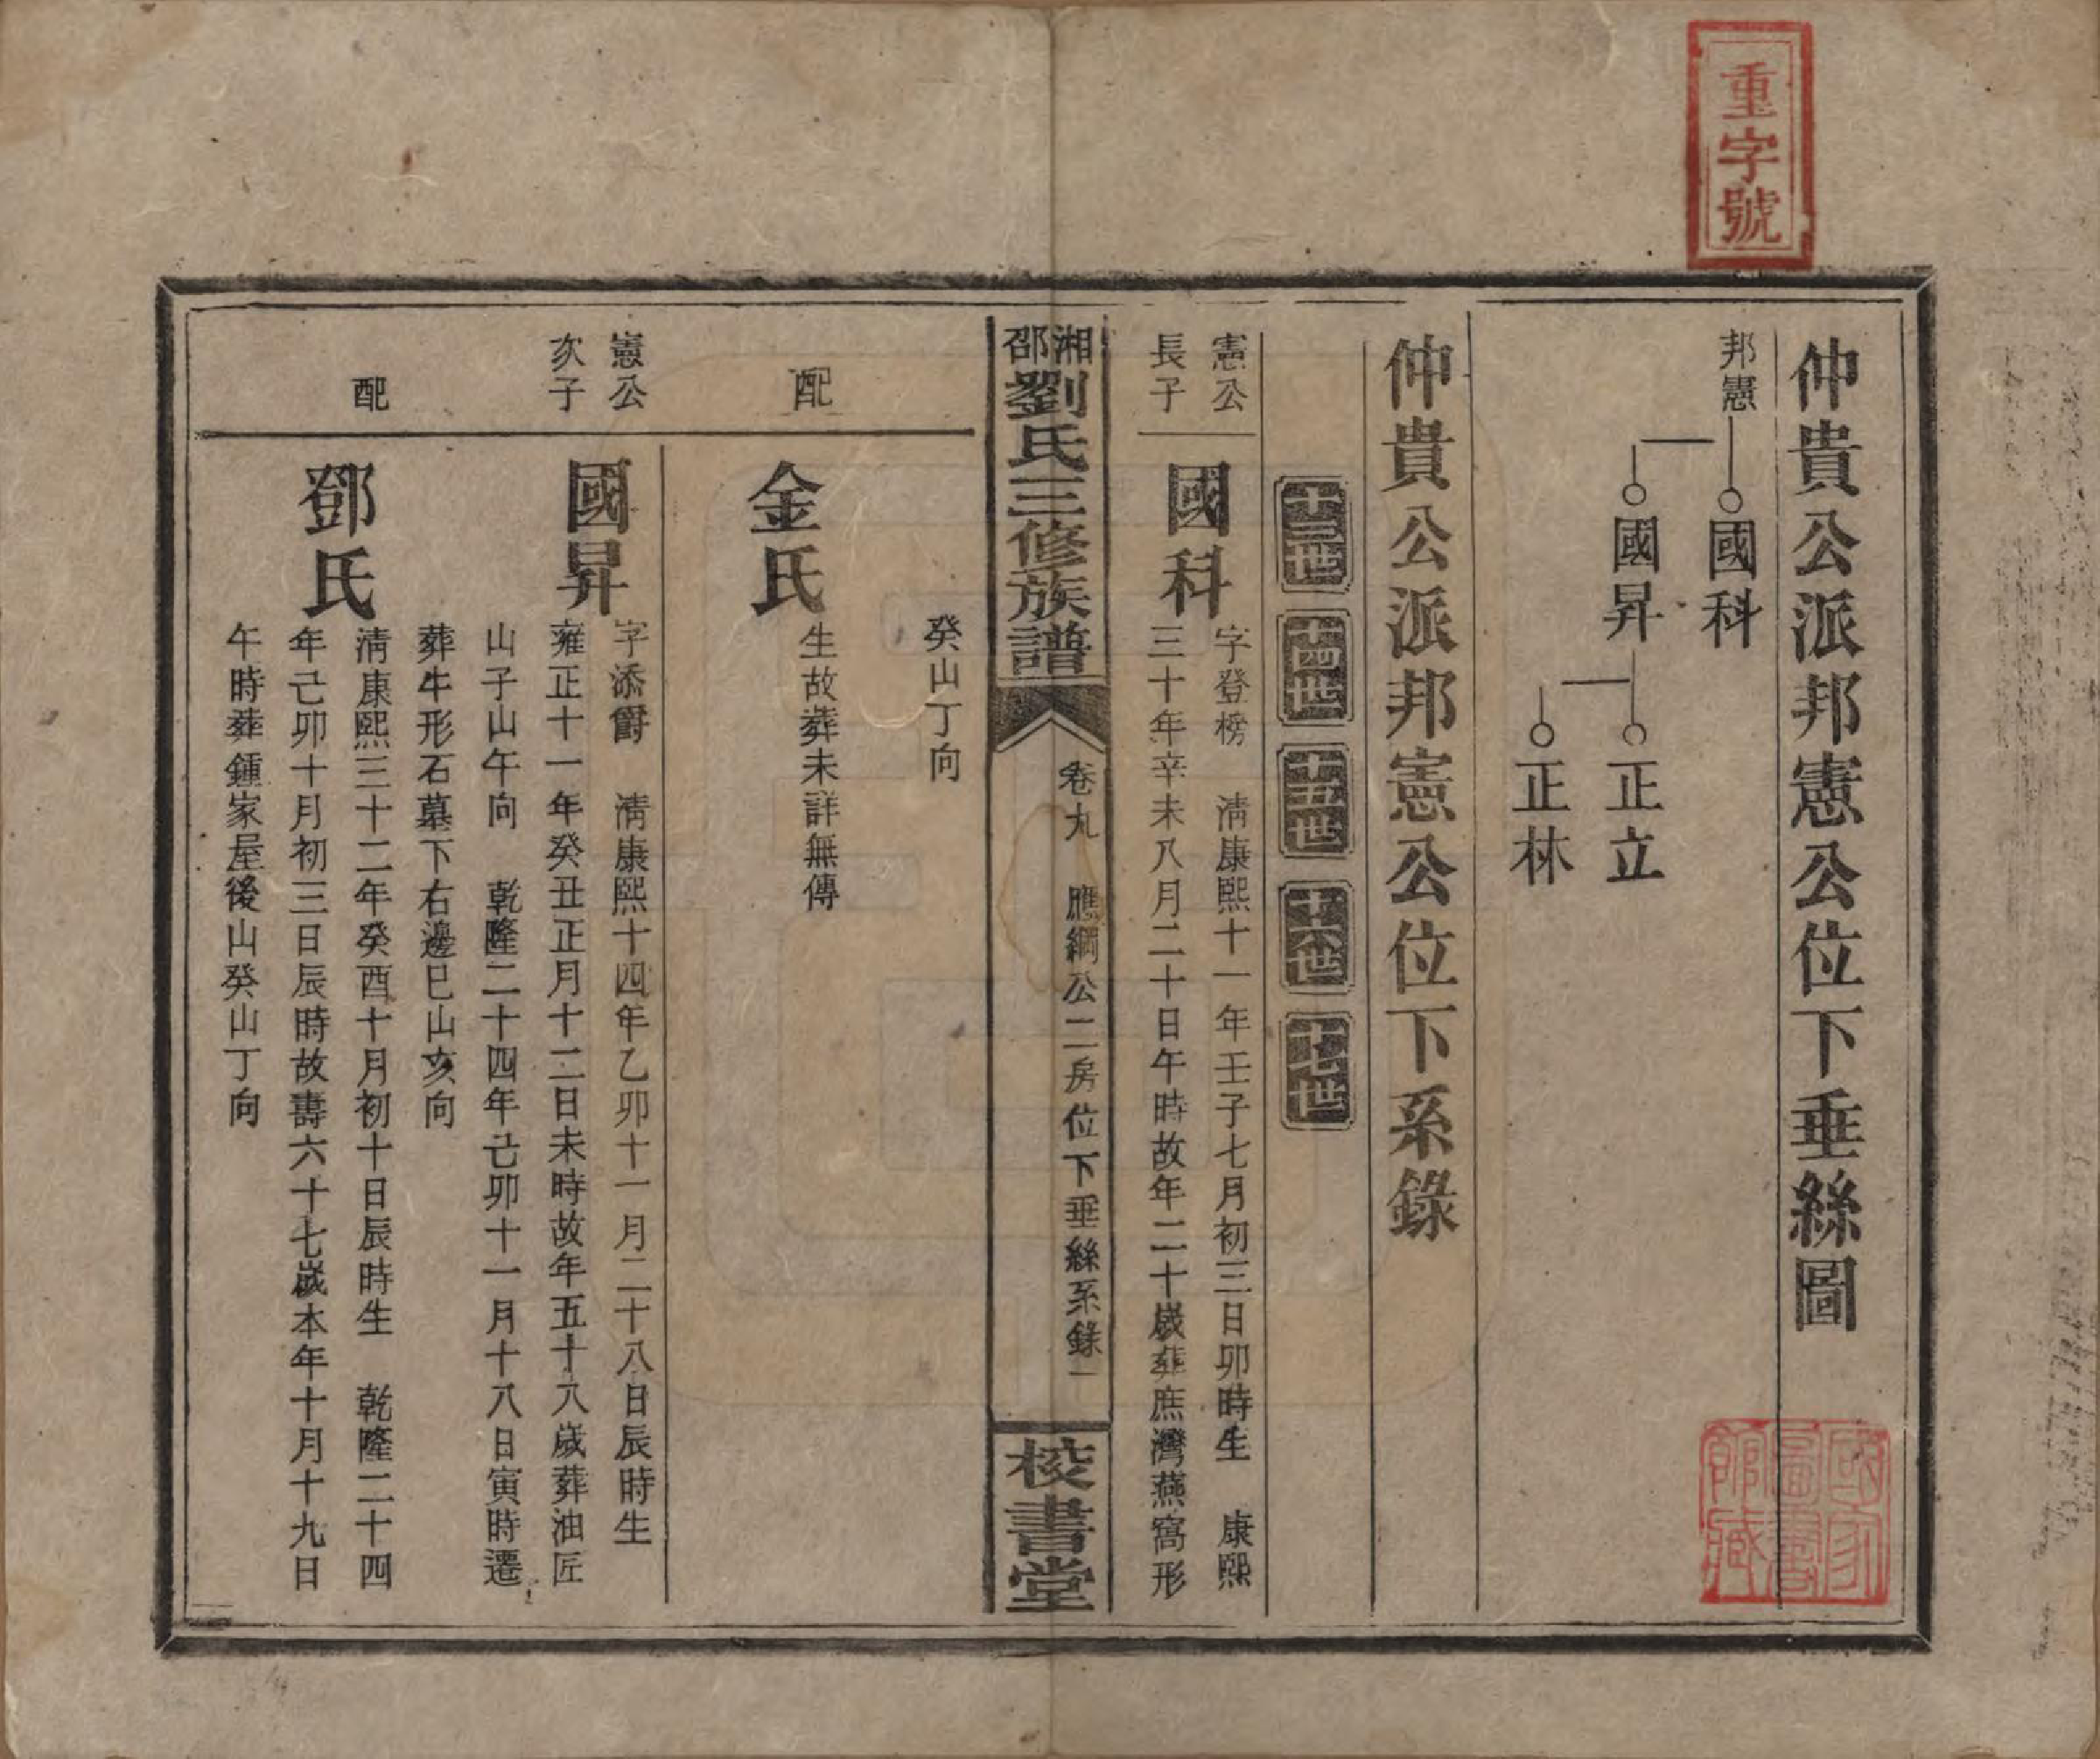 重字號
仲貴公派邦憲公位下垂絲圖
邦憲
國科
國昇
正立
正林
仲貴公派邦憲公位下系錄
十三世 十四世 十五世 十六世 十七世
憲公
長子
國科
字登榜 清康熙十一年壬子七月初三日卯時生 康熙
三十年辛未八月二十日午時故年二十歲葬庶灣燕窩形
湘邵劉氏三修族譜
卷九 應綱公二房位下垂絲系錄 一
校書堂
癸山丁向
配
金氏
生故葬未詳無傳
憲公
次子
國昇
字添爵 清康熙十四年乙卯十一月二十八日辰時生
雍正十一年癸丑正月十二日未時故年五十八歲葬油匠
山子山午向 乾隆二十四年己卯十一月十八日寅時遷
葬牛形石墓下右邊巳山亥向
配
鄧氏
清康熙三十二年癸酉十月初十日辰時生 乾隆二十四
年己卯十月初三日辰時故壽六十七歲本年十月十九日
午時葬鍾家屋後山癸山丁向
國家圖書館藏